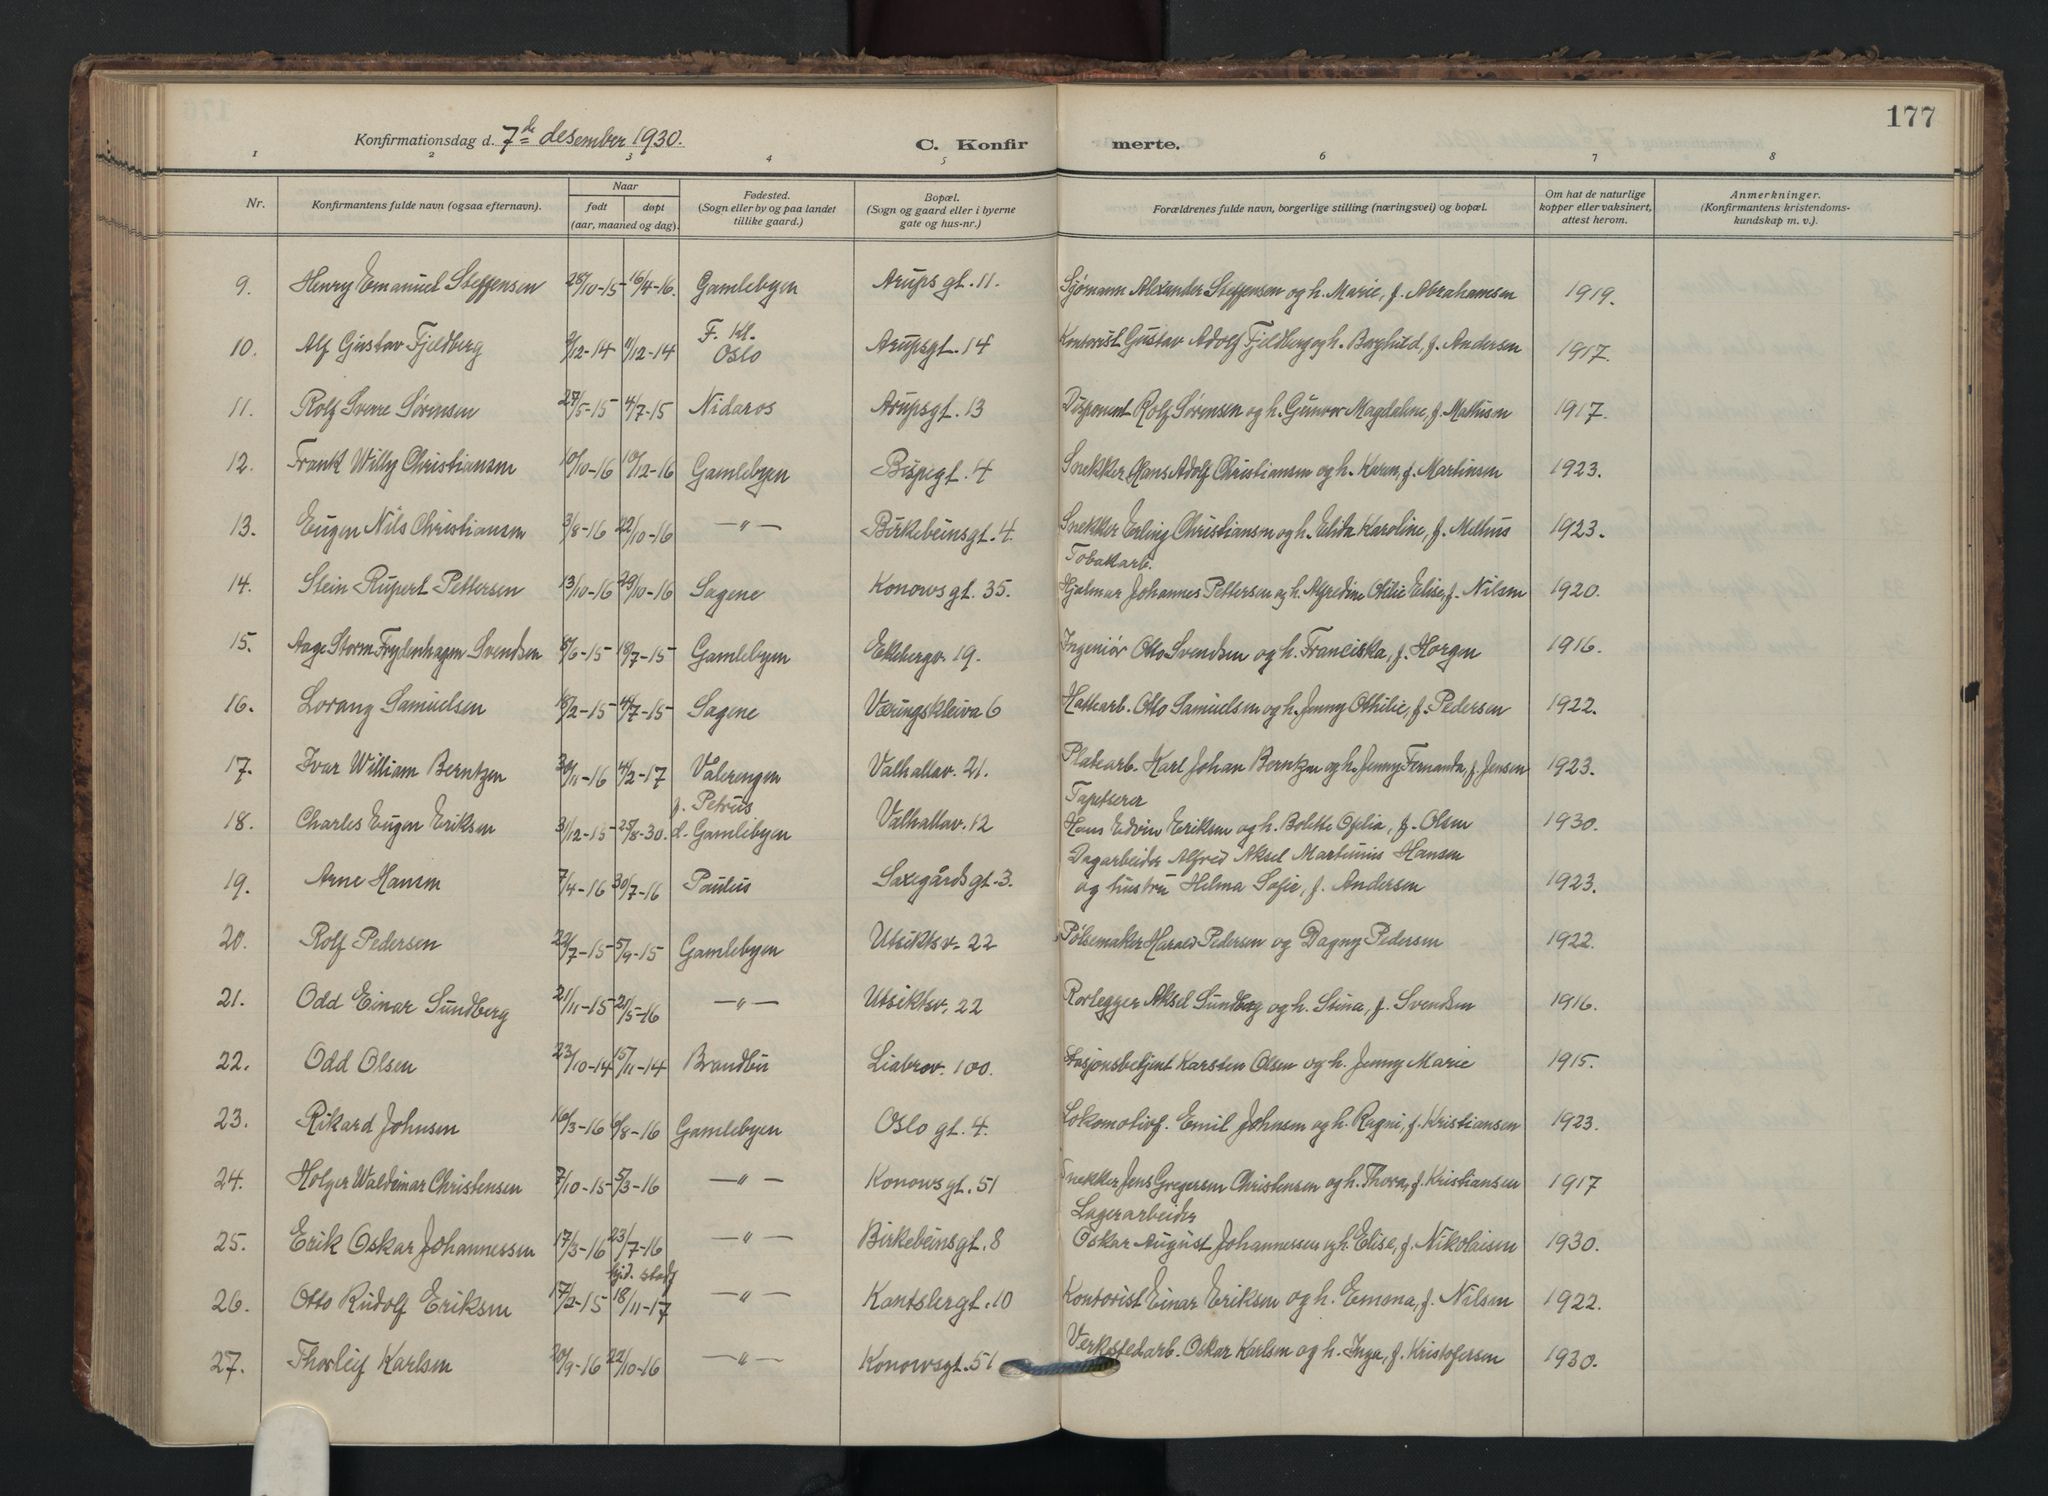 177
Konfirmationsdag d. 7de desember 1930.
C. Konfirmerte.
1 2 3 4 5 6 7 8
Nr.
Konfirmantens fulde navn (ogsaa efternavn).
Naar
født
døpt
(aar, maaned og dag).
Fødested.
(Sogn eller by og paa landet
tillike gaard.)
Bopæl.
(Sogn og gaard eller i byerne
gate og hus-nr.)
Forældrenes fulde navn, borgerlige stilling (næringsvei) og bopæl.
Om hat de naturlige
kopper eller vaksinert,
attest herom.
Anmerkninger.
(Konfirmantens kristendoms-
kundskap m. v.).
9. Henry Emanuel Steffensen 28/10-15 16/4-16. Gamlebyen Arups gt. 11. Sjømann Alexander Steffensen og h. Marie, f. Abrahamsen 1919.
F. Kl.
10. Alf Gustav Fjeldberg 9/12-14 11/12-14 Oslo Arupsgt. 14 Kontorist Gustav Adolf Fjeldberg og h. Borghild, f. Andersen 1917.
11. Rolf Sverre Sørensen 27/5-15 4/7-15 Nidaros Arupsgt. 13 Disponent Rolf Sørensen og h. Gunvor Magdalene, f. Mathisen 1917.
12. Frank Willy Christiansen 10/10-16 10/12-16 Gamlebyen Bispegt. 4 Snekker Hans Adolf Christiansen og h. Karen, f. Martinsen 1923.
13. Eugen Nils Christiansen 3/8-16 22/10-16 —"— Birkebeinsgt. 4. Snekker Erling Christiansen og h. Elida Karoline, f. Melhus 1923.
Tobakarb.
14. Stein Rupert Pettersen 13/10-16 29/10-16 Sagene Konowsgt. 35. Hjalmar Johannes Pettersen og h. Alfredine Otilie Elise, f. Nilsen 1920.
15. Aage Storm Frydenhagen Svendsen /6-15 18/7-15 Gamlebyen Ekebergv. 19. Ingeniør Otto Svendsen og h. Franciska, f. Horgen 1916.
16. Lorang Samuelsen /2-15 4/7-15 Sagene Væringskleiva 6 Hattearb. Otto Samuelsen og h. Jenny Othilie, f. Pedersen 1922.
17. Ivar William Berntzen 30/11-16 4/2-17 Valerengen Valhallav. 21. Platearb. Karl Johan Berntzen og h. Jenny Fernanda, f. Jensen 1923.
f. Petrus. Tapetserer
18. Charles Eugen Eriksen 31/12-15 25/8-30. d. Gamlebyen Valhallav. 12 Hans Edvin Eriksen og h. Bolette Ofelia, f. Olsen 1930.
Dagarbeider Alfred Aksel Martinius Hansen
19. Arne Hansen 7/4-16 30/7-16 Paulus Saxegårdsgt. 3. og hustru Helma Sofie, f. Andersen 1923.
20. Rolf Pedersen 22/7-15 5/9-15 Gamlebyen Utsiktsv. 22 Pølsemaker Harald Pedersen og Dagny Pedersen 1922.
21. Odd Einar Sundberg 21/11-15 21/5-16 —"— Utsiktsv. 22 Rørlegger Aksel Sundberg og h. Stina, f. Svendsen 1916.
22. Odd Olsen 23/10-14 15/11-14 Brandbu Liabrov. 100. Stasjonsbetjent Karsten Olsen og h. Jenny Marie 1915.
23. Rikard Johnsen 16/3-16 6/8-16 Gamlebyen Oslo gt. 4. Lokomotivf. Emil Johnsen og h. Ragni, f. Kristiansen 1923.
24. Holger Waldemar Christensen 7/10-15 5/3-16 —"— Konowsgt. 51 Snekker Jens Gregersen Christensen og h. Thora, f. Kristiansen 1917
Lagerarbeider
25. Erik Oskar Johannessen 17/3-16 23/7-16 —"— Birkebeinsgt. 8 Oskar August Johannessen og h. Elise, f. Nikolaisen 1930.
hjd. stadf
26. Otto Rudolf Eriksen 17/2-15 18/11-17 —"— Kantslergt. 10 Kontorist Einar Eriksen og h. Emona, f. Nilsen 1922.
27. Thorleif Karlsen 20/9-16 22/10-16 —"— Konowsgt. 51 Verkstedarb. Oskar Karlsen og h. Inga, f. Kristofersen 1930.